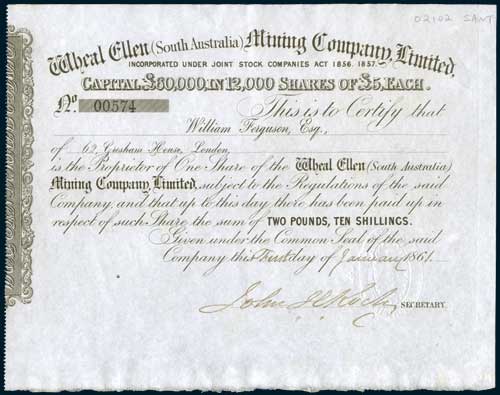 02102 SANT
Wheal Ellen (South Australia) Mining Company, Limited,
INCORPORATED UNDER JOINT STOCK COMPANIES ACT 1856. 1857.
CAPITAL £60,000, IN 12,000 SHARES OF £5, EACH.
No. 00574
This is to Certify that
William Ferguson, Esq.,
of 62, Gresham House, London,
is the Proprietor of One Share of the Wheal Ellen (South Australia)
Mining Company, Limited, subject to the Regulations of the said
Company, and that up to this day there has been paid up in
respect of such Share the sum of TWO POUNDS, TEN SHILLINGS.
Given under the Common Seal of the said
Company this First day of January 1861.
John SECRETARY.